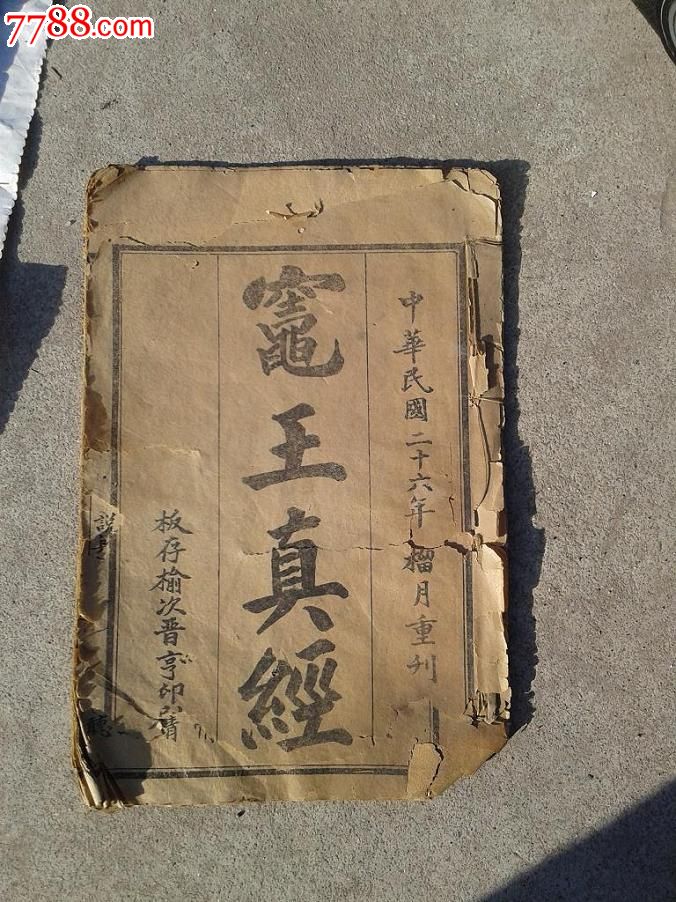 7788.com
中華民國二十六年 榴月重刊
竈王真經
板存榆次晋亨印